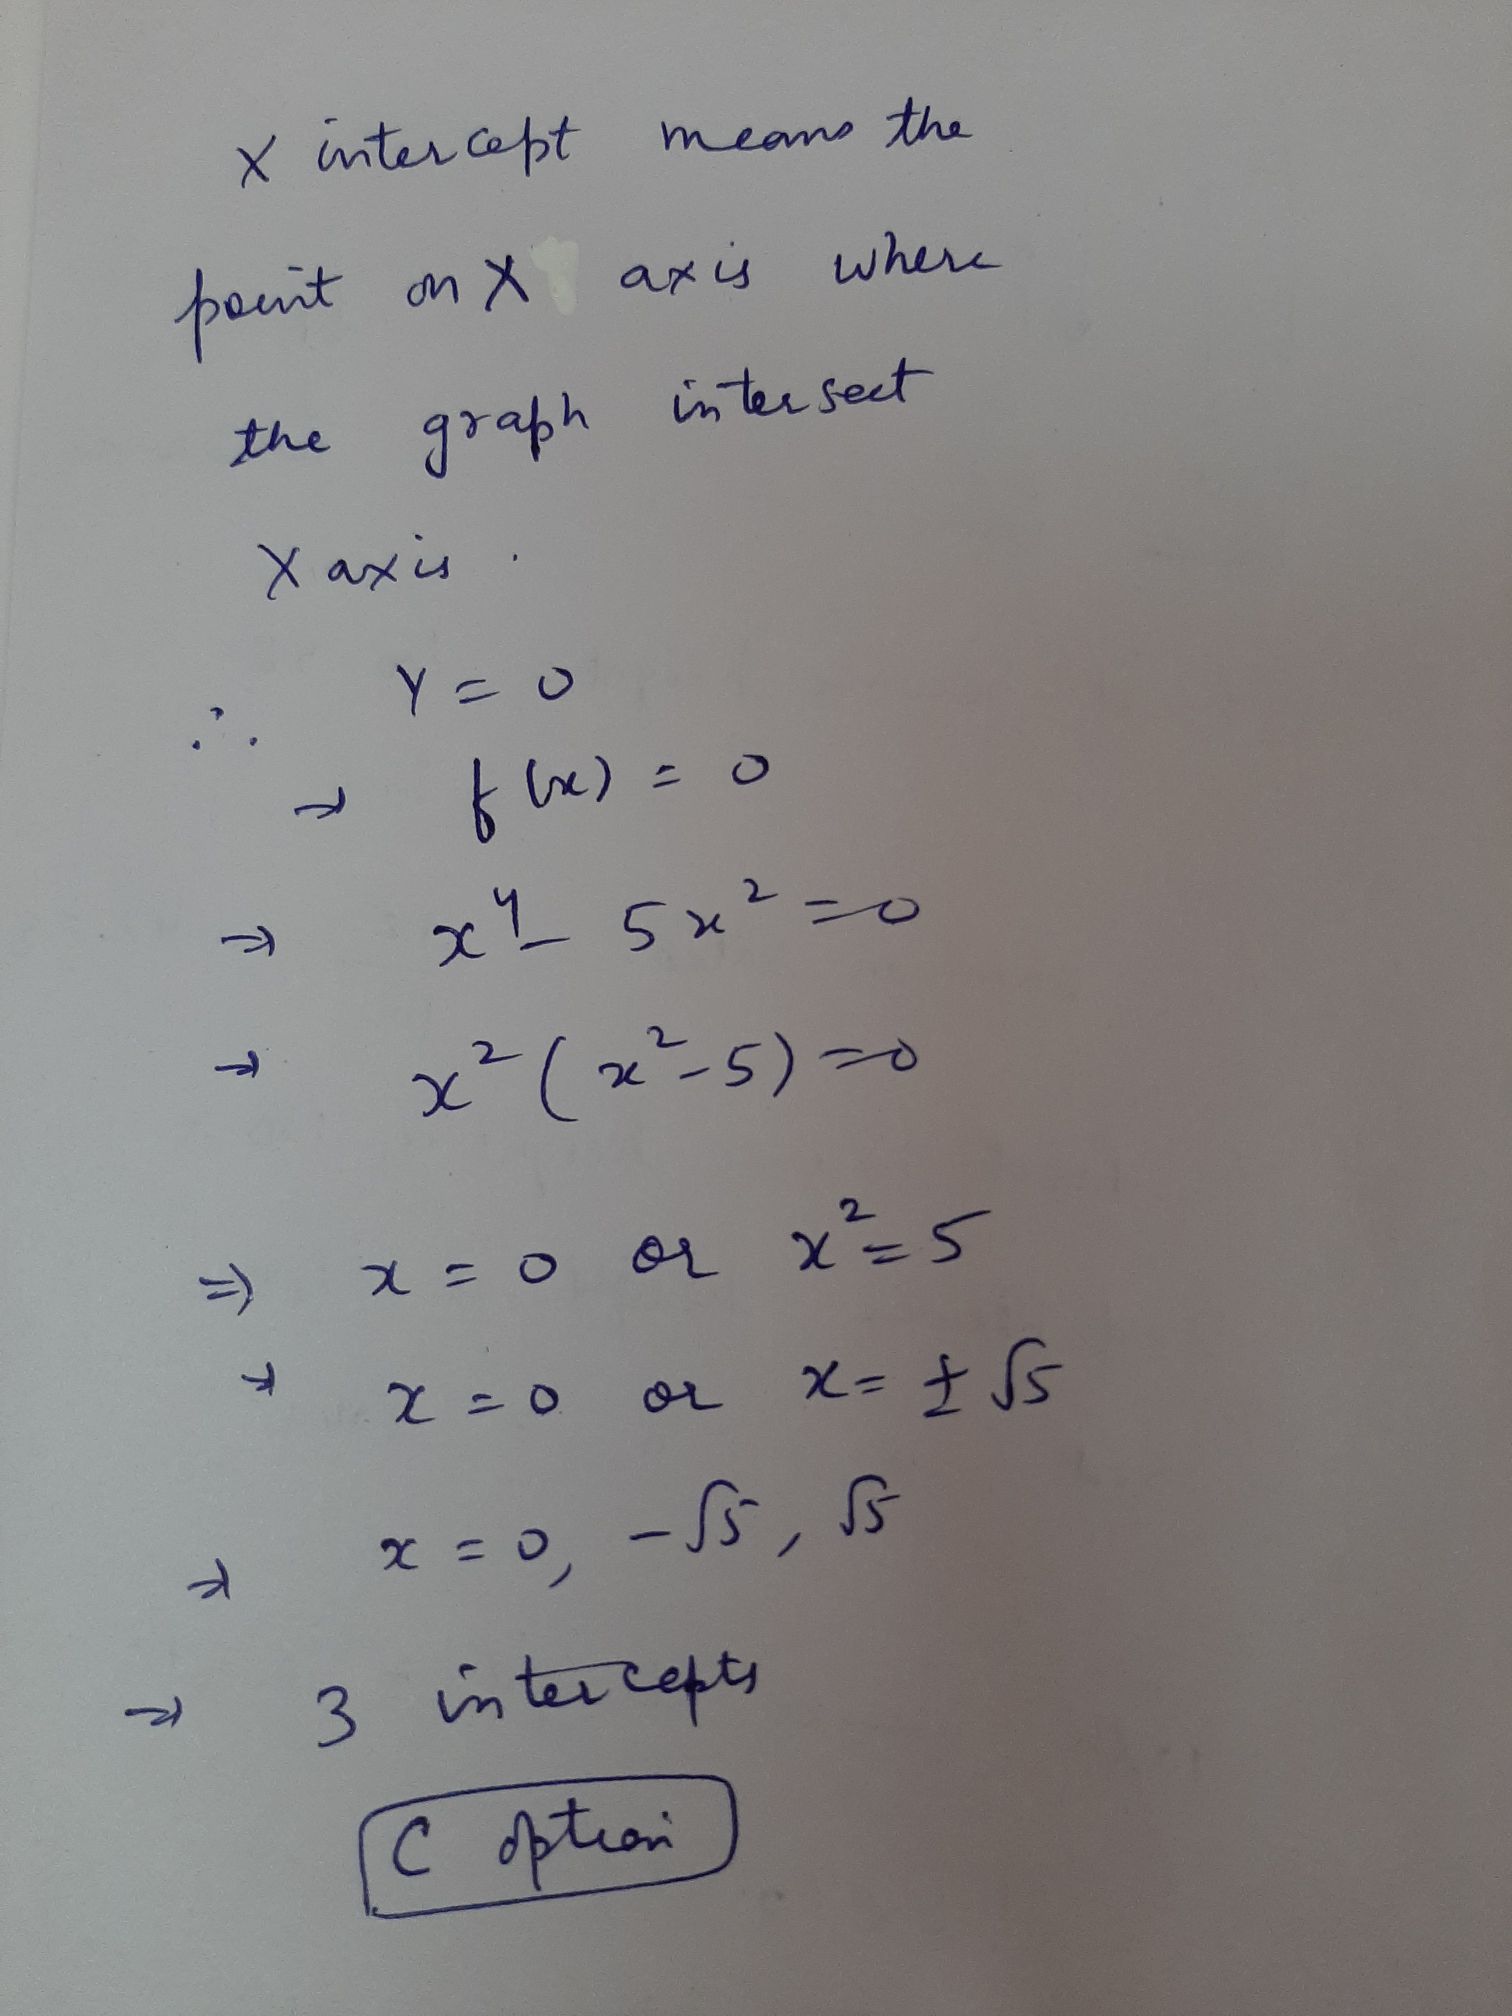 X intercept means the
point on X axis where
the graph intersect
X axis.
∴ Y = 0
⇒ f(x) = 0
⇒ x⁴ - 5x² = 0
⇒ x² (x² - 5) = 0
⇒ x = 0 or x² = 5
⇒ x = 0 or x = ± √5
⇒ x = 0, -√5, √5
⇒ 3 intercepts
C option